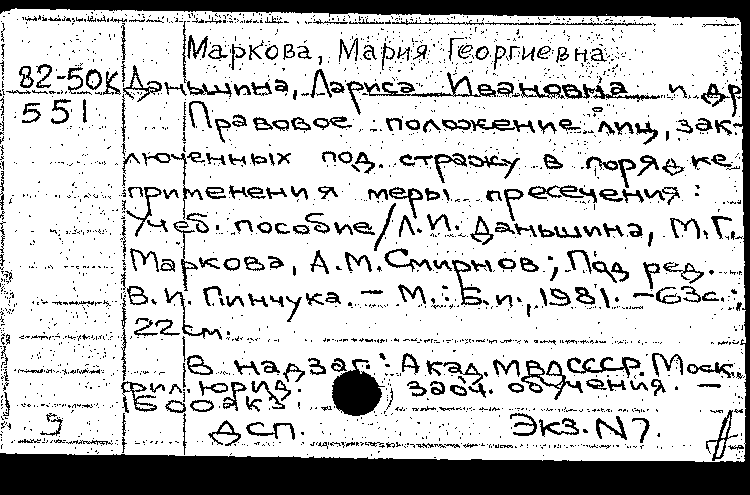 Маркова, Мария Георгиевна
82-50к Даньшина, Лариса Ивановна и др
551 Правовое положение лиц, зак-
люченных под стражу в порядке
применения меры пресечения:
Учеб. пособие/Л.И. Даньшина, М.Г.
Маркова, А.М. Смирнов; Под ред.
В.И. Пинчука. – М.: Б.и., 1981. – 63с.;
22см.
В надзаг.: Акад. МВД СССР. Моск.
фил. юрид. заоч. обучения. –
1500экз.
9 ДСП. Экз. N7.